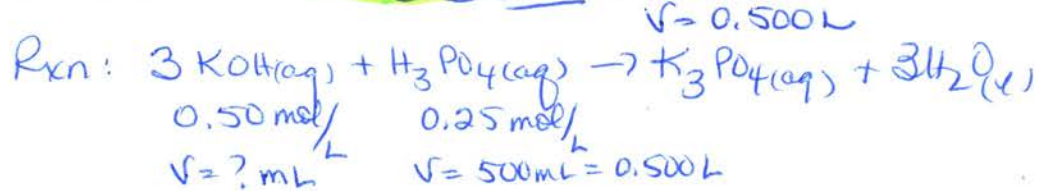 V = 0.500L
Rxn: 3 KOH(aq) + H₃PO₄(aq) → K₃PO₄(aq) + 3H₂O(l)
0.50 mol/L 0.25 mol/L
V = ? mL V = 500mL = 0.500L